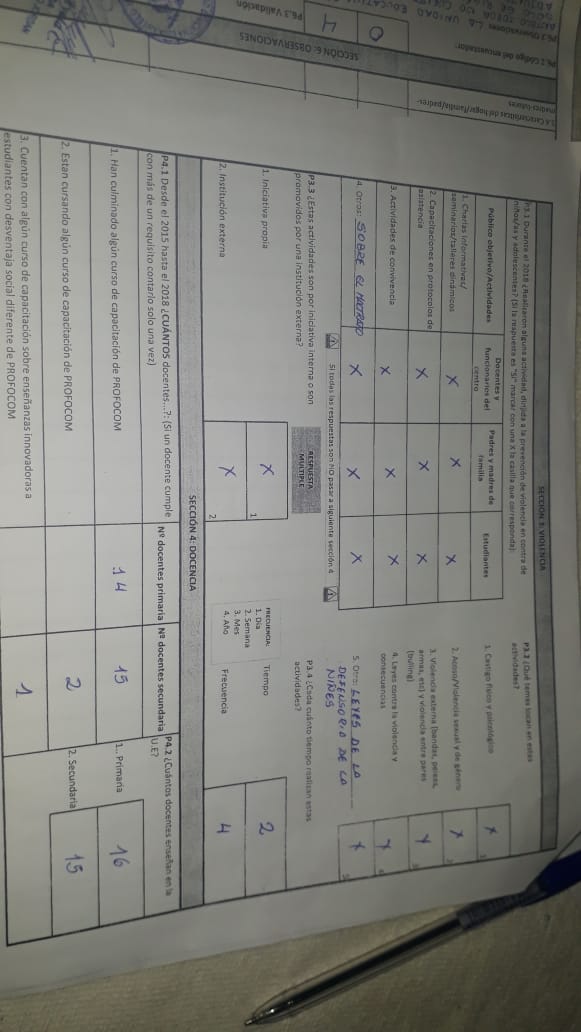 SECCIÓN 3: VIOLENCIA
P3.1 Durante el 2018 ¿Realizaron alguna actividad, dirigida a la prevención de violencia en contra de
niños/as y adolescentes? (Si la respuesta es "SI" marcar con una X la casilla que corresponda):
Público objetivo/Actividades
Docentes y
funcionarios del
centro
Padres y madres de
familia
Estudiantes
1. Charlas informativas/
seminarios/talleres dinámicos
X X X
2. Capacitaciones en protocolos de
asistencia
X X X
3. Actividades de convivencia
X X X
4. Otros: SOBRE EL
X X X
Si todas las respuestas son NO pasar a siguiente sección 4
P3.2 ¿Qué temas tocan en estas
actividades?
1. Castigo físico y psicológico
X
1
2. Acoso/Violencia sexual y de género
X
2
3. Violencia externa (bandas, peleas,
armas, etc) y violencia entre pares
(bulling)
X
3
4. Leyes contra la violencia y
consecuencias
X
4
5. Otro: LEYES DE LA
DEFENSORIO DE LA
NIÑES
X
5
P3.3 ¿Estas actividades son por iniciativa interna o son
promovidos por una institución externa?
RESPUESTA
MULTIPLE
1. Iniciativa propia
X
1
2. Institución externa
X
2
P3.4 ¿Cada cuánto tiempo realizan estas
actividades?
FRECUENCIA:
1. Dia
2. Semana
3. Mes
4. Año
Tiempo
2
Frecuencia
4
SECCIÓN 4: DOCENCIA
P4.1 Desde el 2015 hasta el 2018 ¿CUÁNTOS docentes...?: (Si un docente cumple
con más de un requisito contarlo solo una vez)
Nº docentes primaria
Nº docentes secundaria
1. Han culminado algún curso de capacitación de PROFOCOM
14
15
2. Estan cursando algún curso de capacitación de PROFOCOM
2
3. Cuentan con algún curso de capacitación sobre enseñanzas innovadoras a
estudiantes con desventaja social diferente de PROFOCOM
1
P4.2 ¿Cuántos docentes enseñan en la
U.E?
1.. Primaria
16
2. Secundaria
15
3.4 Características del hogar/familia/padres-
madres-tutores
SECCIÓN 6: OBSERVACIONES
P6.2 Código del encuestador:
0
4
P6.3 Validación
P6.3 Observaciones
LA UNIDAD